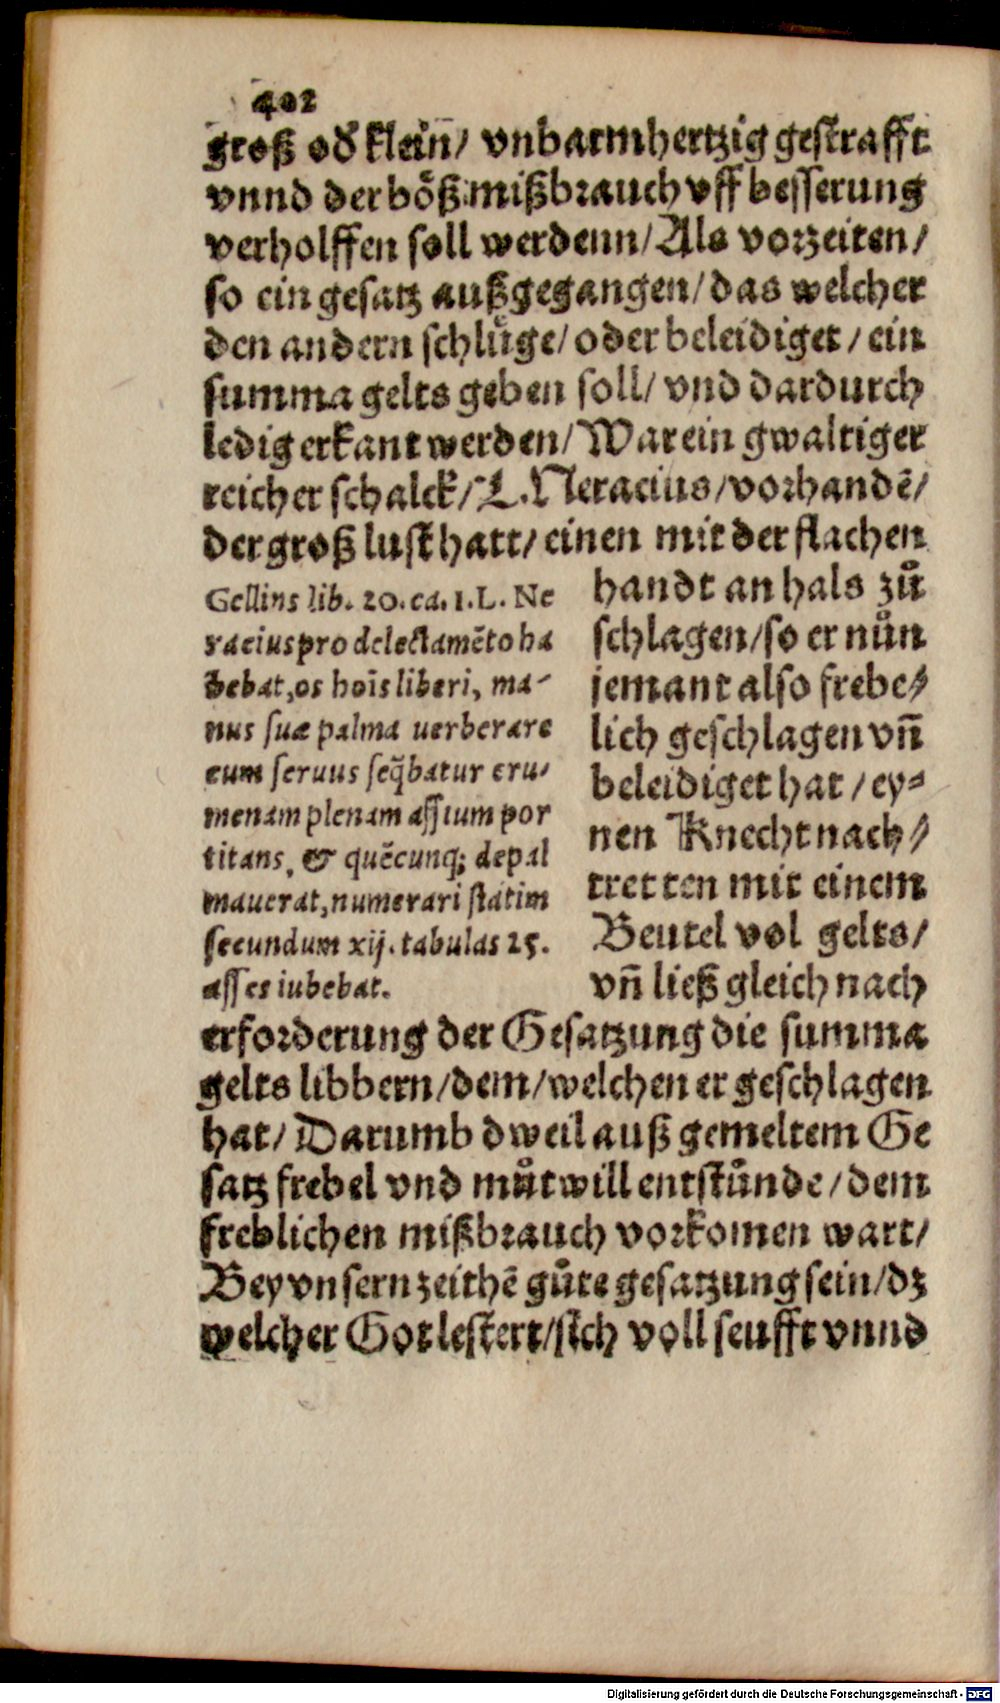 402
groß od̕ klein/ vnbarmhertzig gestrafft
vnnd der bôß mißbrauch vff besserung
verholffen soll werdenn/ Als vorzeiten/
so ein gesatz außgegangen/ das welcher
den andern schlůge/ oder beleidiget / ein
summa gelts geben soll/ vnd dardurch
ledig erkant werden/ War ein gwaltiger
reicher schalck/ L. Neracius/ vorhandē/
der groß lust hatt/ einen mit der flachen
handt an hals zů
schlagen/ so er nůn
jemant also frebe⸗
lich geschlagen vñ
beleidiget hat / ey⸗
nen Knecht nach⸗
tretten mit einem
Beutel vol gelts/
vñ ließ gleich nach
Gellius lib. 20. ca. 1. L. Ne
racius pro delectamēto ha
bebat, os hoīs liberi, ma-
nus suæ palma uerberare
eum seruus seq̄batur cru-
menam plenam assium por
titans, & quēcunq; depal
mauerat, numerari statim
secundum xij. tabulas 25.
asses iubebat.
erforderung der Gesatzung die summa
gelts libbern/ dem/ welchen er geschlagen
hat/ Darumb dweil auß gemeltem Ge
satz frebel vnd můtwill entstůnde / dem
freblichen mißbrauch vorkomen wart/
Bey vnsern zeithē gůte gesatzung sein/ dz
welcher Got lestert/ sich voll seufft vnnd
Digitalisierung gefördert durch die Deutsche Forschungsgemeinschaft - DFG